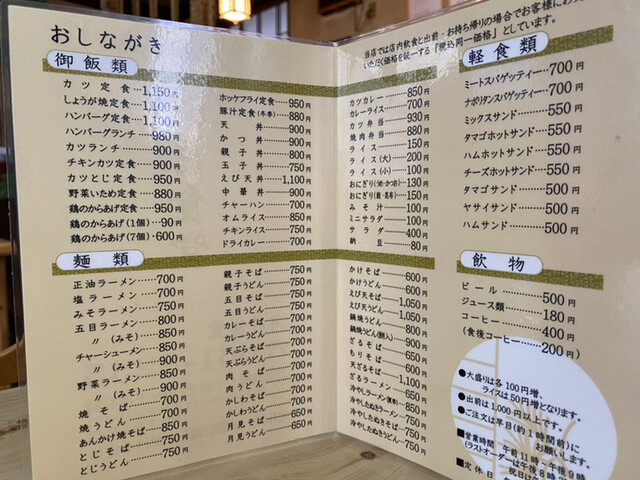 おしながき
御飯類
カツ定食……1,150円
しょうが焼定食…1,100円
ハンバーグ定食…1,100円
ハンバーグランチ……980円
カツランチ……900円
チキンカツ定食……900円
カツとじ定食……950円
野菜いため定食……880円
鶏のからあげ定食…950円
鶏のからあげ(1個)…90円
鶏のからあげ(7個)…600円
ホッケフライ定食…950円
豚汁定食(冬季)……880円
天丼……900円
かつ丼……900円
親子丼……800円
玉子丼……750円
えび天丼……1,100円
中華丼……900円
チャーハン……700円
オムライス……850円
チキンライス……750円
ドライカレー……700円
麺類
正油ラーメン……700円
塩ラーメン……700円
みそラーメン……750円
五目ラーメン……800円
〃(みそ)……850円
チャーシューメン……850円
〃(みそ)……900円
野菜ラーメン……850円
〃(みそ)……900円
焼そば……700円
焼うどん……700円
あんかけ焼そば……850円
とじそば……750円
とじうどん……750円
親子そば……750円
親子うどん……750円
五目そば……750円
五目うどん……750円
カレーそば……700円
カレーうどん……700円
天ぷらそば……750円
天ぷらうどん……750円
肉そば……700円
肉うどん……700円
かしわそば……700円
かしわうどん……700円
月見そば……650円
月見うどん……650円
当店では店内飲食と出前・お持ち帰りの場合でお客様にお
いただく価格を統一する「税込同一価格」としています。
カツカレー……850円
カレーライス……700円
カツ弁当……930円
焼肉弁当……880円
ライス……150円
ライス(大)……200円
ライス(小)……100円
おにぎり(鮭・かつお)…130円
みそ汁……100円
ミニサラダ……200円
サラダ……400円
納豆……80円
かけそば……600円
かけうどん……600円
えび天そば……1,050円
えび天うどん……1,050円
鍋焼うどん……900円
ざるそば……650円
もりそば……600円
天ざるそば……1,100円
ざるラーメン……650円
軽食類
ミートスパゲッティー…700円
ナポリタンスパゲッティー…700円
ミックスサンド……550円
タマゴホットサンド…550円
ハムホットサンド……550円
チーズホットサンド…550円
タマゴサンド……500円
ヤサイサンド……500円
ハムサンド……500円
飲物
ビール……500円
ジュース類……180円
コーヒー……400円
(食後コーヒー……200円)
●大盛りは各100円増、
ライスは50円増となります。
●出前は1,000円以上です。
●ご注文は早目(約1時間前)に
お願いします。
■営業時間 午前11時〜午後
(ラストオーダーは午後8時
祝日は
■定休日